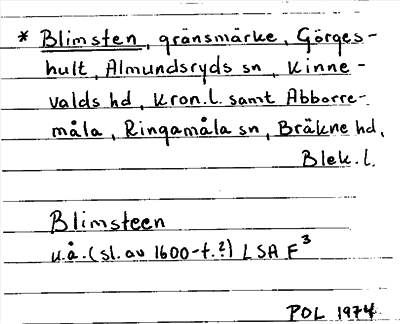 * Blimsten, gränsmärke, Görges-
hult, Almundsryds sn, Kinne-
valds hd, Kron.l. samt Abborre-
måla, Ringamåla sn, Bräkne hd,
Blek. l.
Blimsteen
u.å. (sl. av 1600-t.?) LSA F³
POL 1974